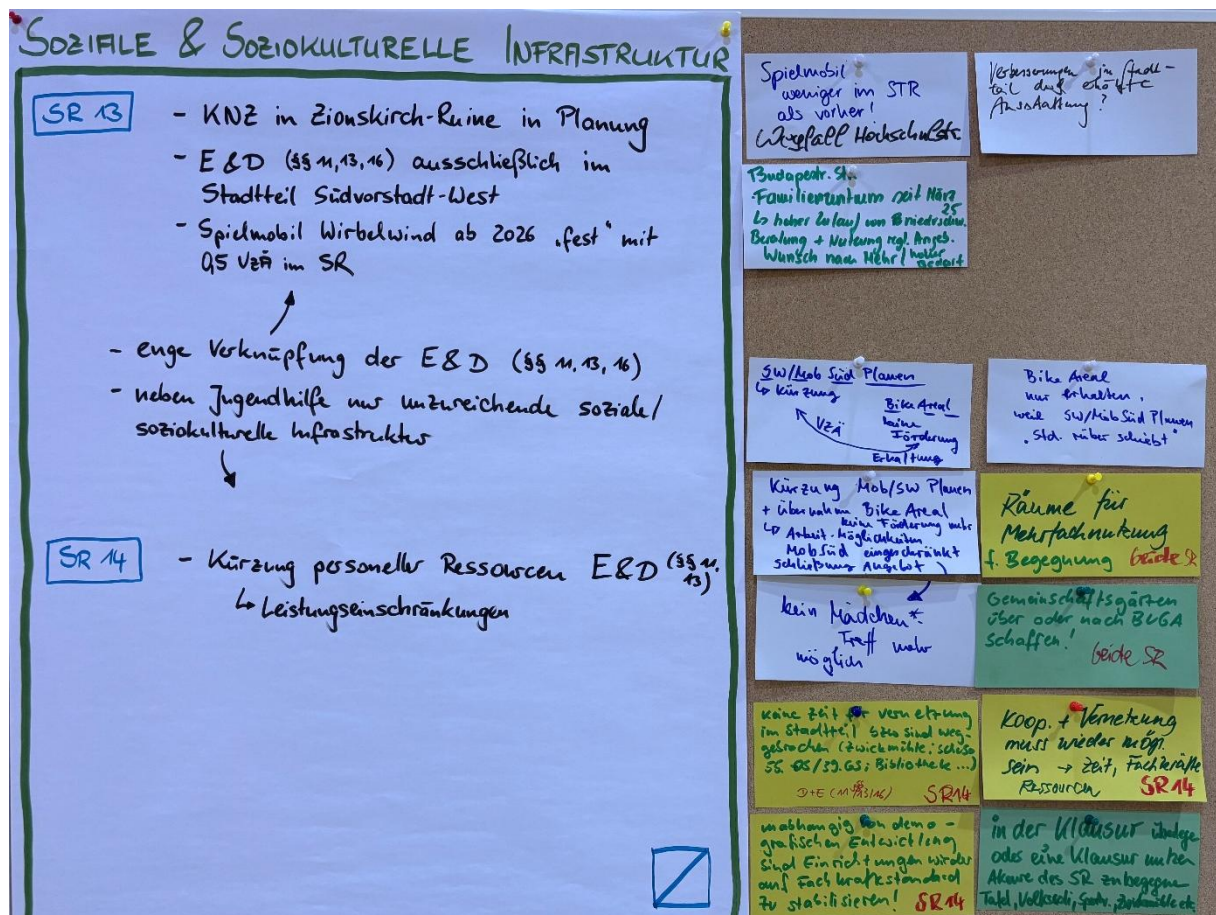 SOZIALE & SOZIOKULTURELLE INFRASTRUKTUR
SR 13
- KNZ in Zionskirch-Ruine in Planung
- E & D (§§ 11, 13, 16) ausschließlich im
Stadtteil Südvorstadt-West
- Spielmobil Wirbelwind ab 2026 „fest“ mit
0,5 VzÄ im SR
- enge Verknüpfung der E & D (§§ 11, 13, 16)
- neben Jugendhilfe nur unzureichende soziale/
soziokulturelle Infrastruktur
SR 14
- Kürzung personeller Ressourcen E & D (§§ 11,
13)
↳ Leistungseinschränkungen
Spielmobil
weniger im STR
als vorher!
Wegfall Hochschulstr.
Verbesserungen in Stadt-
teil durch erhöhte
Ausstattung?
Budapestr. St.
Familienzentrum seit März
25
↳ hoher Zulauf von
Beratung + Nutzung regl. Anges.
Wunsch nach Mehr / hoher
Bedarf
SW/Mob Süd Plauen
↳ Kürzung
Bike Areal
keine
Förderung
VZÄ
Erhaltung
Bike Areal
nur erhalten,
weil SW/Mob Süd Plauen
„Std. rüber schiebt“
Kürzung Mob/SW Plauen
+ Übernahme Bike Areal
keine Förderung mehr
↳ Arbeit-Möglichkeiten
Mob Süd eingeschränkt
schließung Angebot
Räume für
Mehrfachnutzung
f. Begegnung beide SR
kein Mädchen*-
Treff mehr
möglich
Gemeinschaftsgärten
über oder nach BUGA
schaffen!
beide SR
keine Zeit für Vernetzung
im Stadtteil bzw sind weg-
gebrochen (Zwickmühle; schoso
55. OS/39. GS; Bibliothek ...)
D+E (11/13/16) SR14
Koop. + Vernetzung
muss wieder mögl.
sein → Zeit, Fachkräfte
Ressourcen SR 14
unabhängig von demo-
grafischen Entwicklung
sind Einrichtungen wieder
auf Fachkraftstandard
zu stabilisieren! SR 14
in der Klausur
oder eine Klausur nutzen
Akteure des SR
Tafel, Volkssoli,